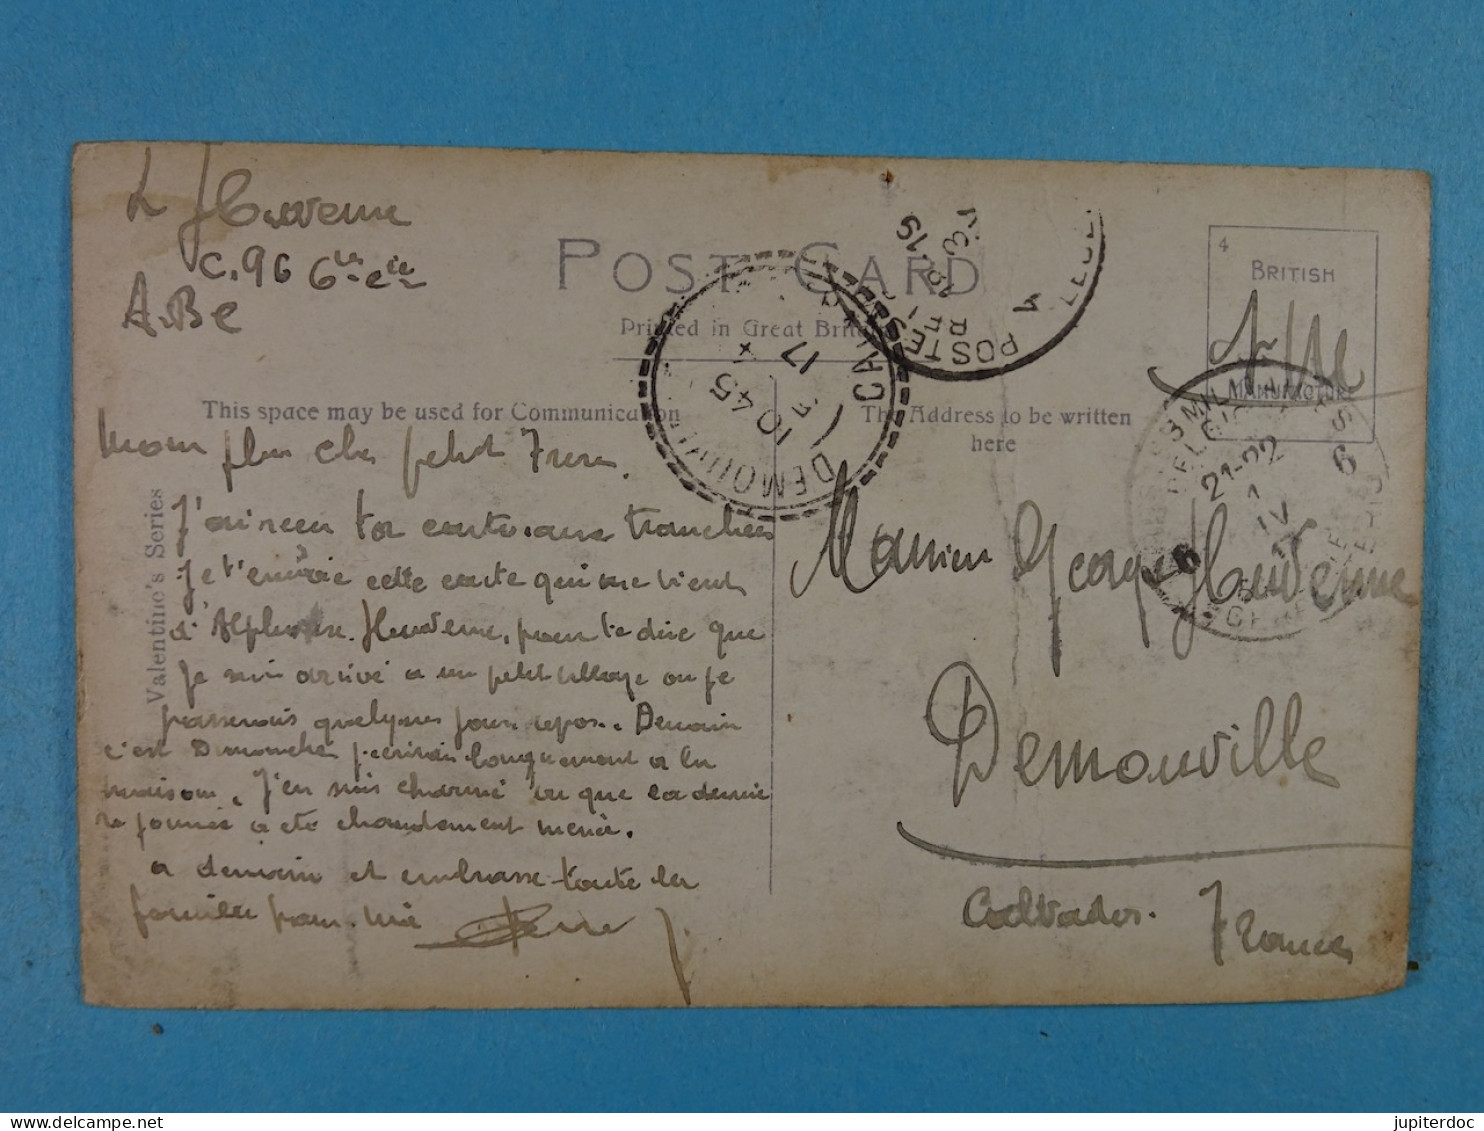 C.96 6
A.Be
POST CARD
Printed in Great Brit
4
BRITISH
MANUFACTURE
This space may be used for Communication
The Address to be written
here
Valentine's Series
Mon plus cher petit Frere.
J'ai recu ta carte aux tranchees
je t'envoie cette carte qui me vient
d'Alphonse Heuveme, pour te dire que
je suis arrivé a un petit village ou je
passerais quelques jours repos. Demain
c'est Dimanche j'ecrirai longuement a la
maison. J'en suis charmé vu que la derniè
re journée a été chaudement menée.
a demain et embrasse toute la
famille pour moi
POSTES
4
DEMOUVI
CALVA
10 45
17
21-22
1
IV
17
6
6
Monsieur Georges Heuveme
Demouville
Calvados. France
jupiterdoc